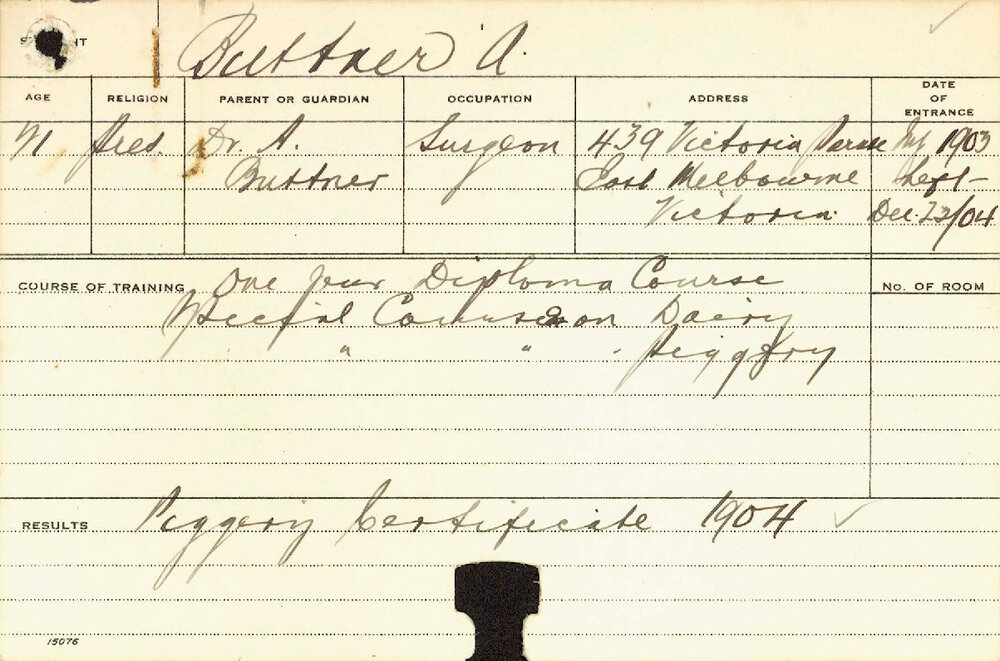 Buttner A.
AGE RELIGION PARENT OR GUARDIAN OCCUPATION ADDRESS DATE OF ENTRANCE
21 Pres. Dr. A. Surgeon 439 Victoria Parade 1903
Buttner East Melbourne Left
Victoria. Dec. 22/04
COURSE OF TRAINING One year Diploma Course
No. OF ROOM
Special Course on Dairy
" " " Piggery
RESULTS Piggery Certificate 1904
15076